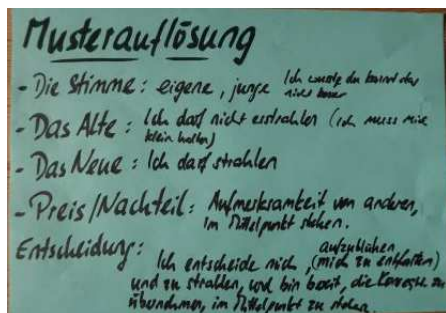 Musterauflösung
- Die Stimme: eigene, junge Ich
nicht
- Das Alte: Ich darf nicht erstrahlen (ich muss mich
klein halten)
- Das Neue: Ich darf strahlen
- Preis/Nachteil: Aufmerksamkeit von anderen,
im Mittelpunkt stehen.
Entscheidung:
aufzublühen,
Ich entscheide mich, (mich zu entfalten)
und zu strahlen, und bin bereit, die Konsequ. zu
übernehmen, im Mittelpunkt zu stehen.